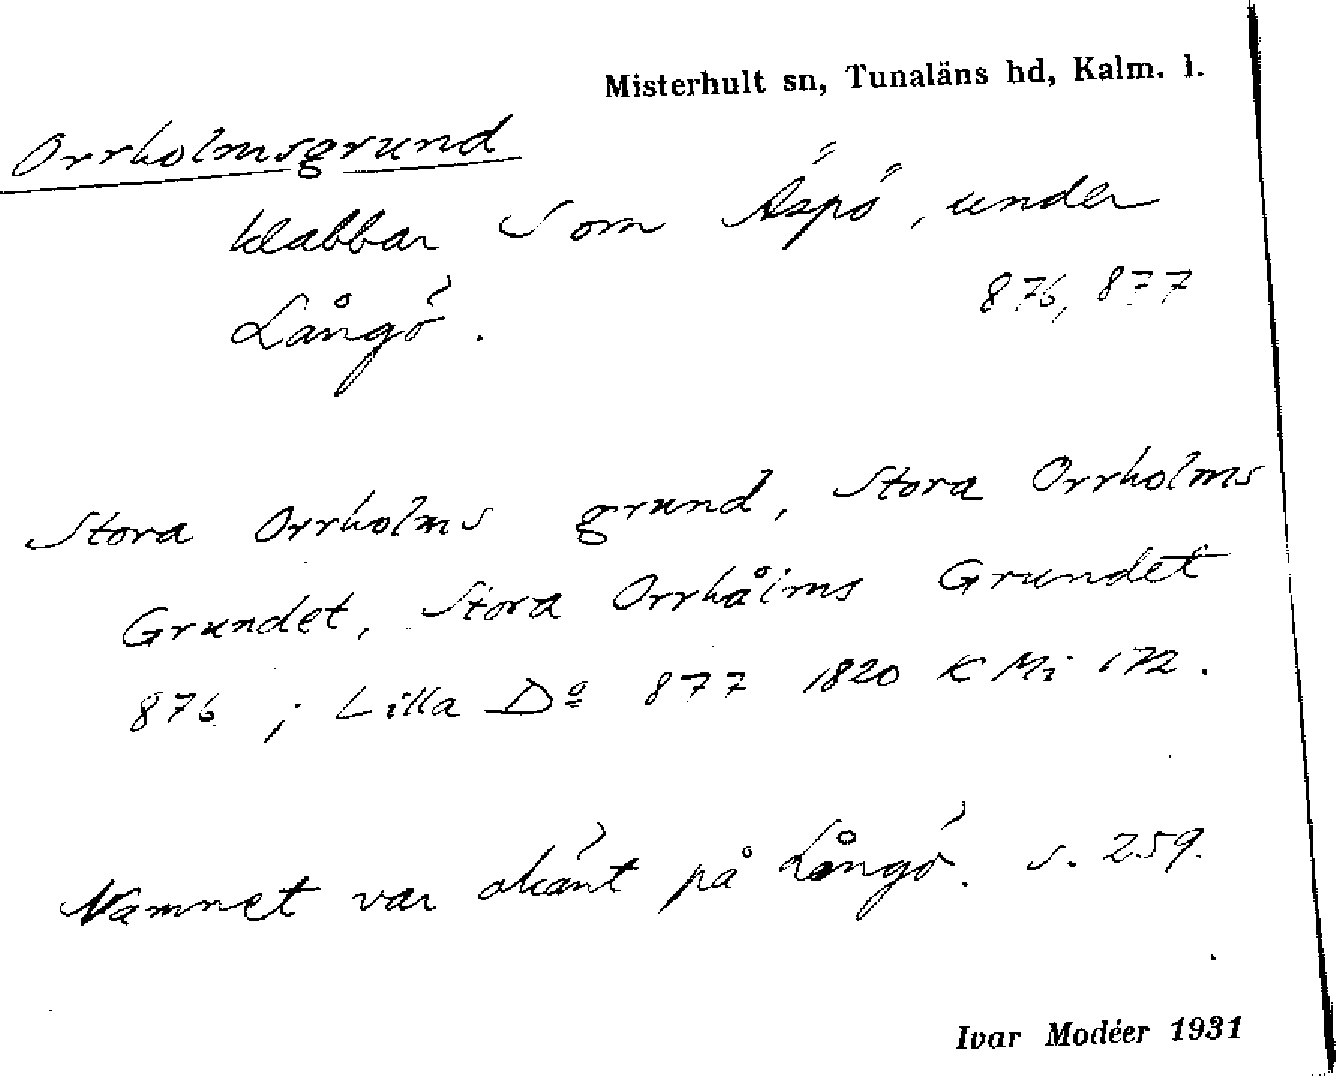 Misterhult sn, Tunaläns hd, Kalm. l.
Orrholmsgrund
klabbar S om Äspö, under
Långö.
876, 877
Stora Orrholms grund, Stora Orrholms
Grundet, Stora Orrhålms Grundet
876 ; Lilla Dº 877 1820 K Mi 172.
Namnet var okänt på Långö. s. 259.
Ivar Modéer 1931